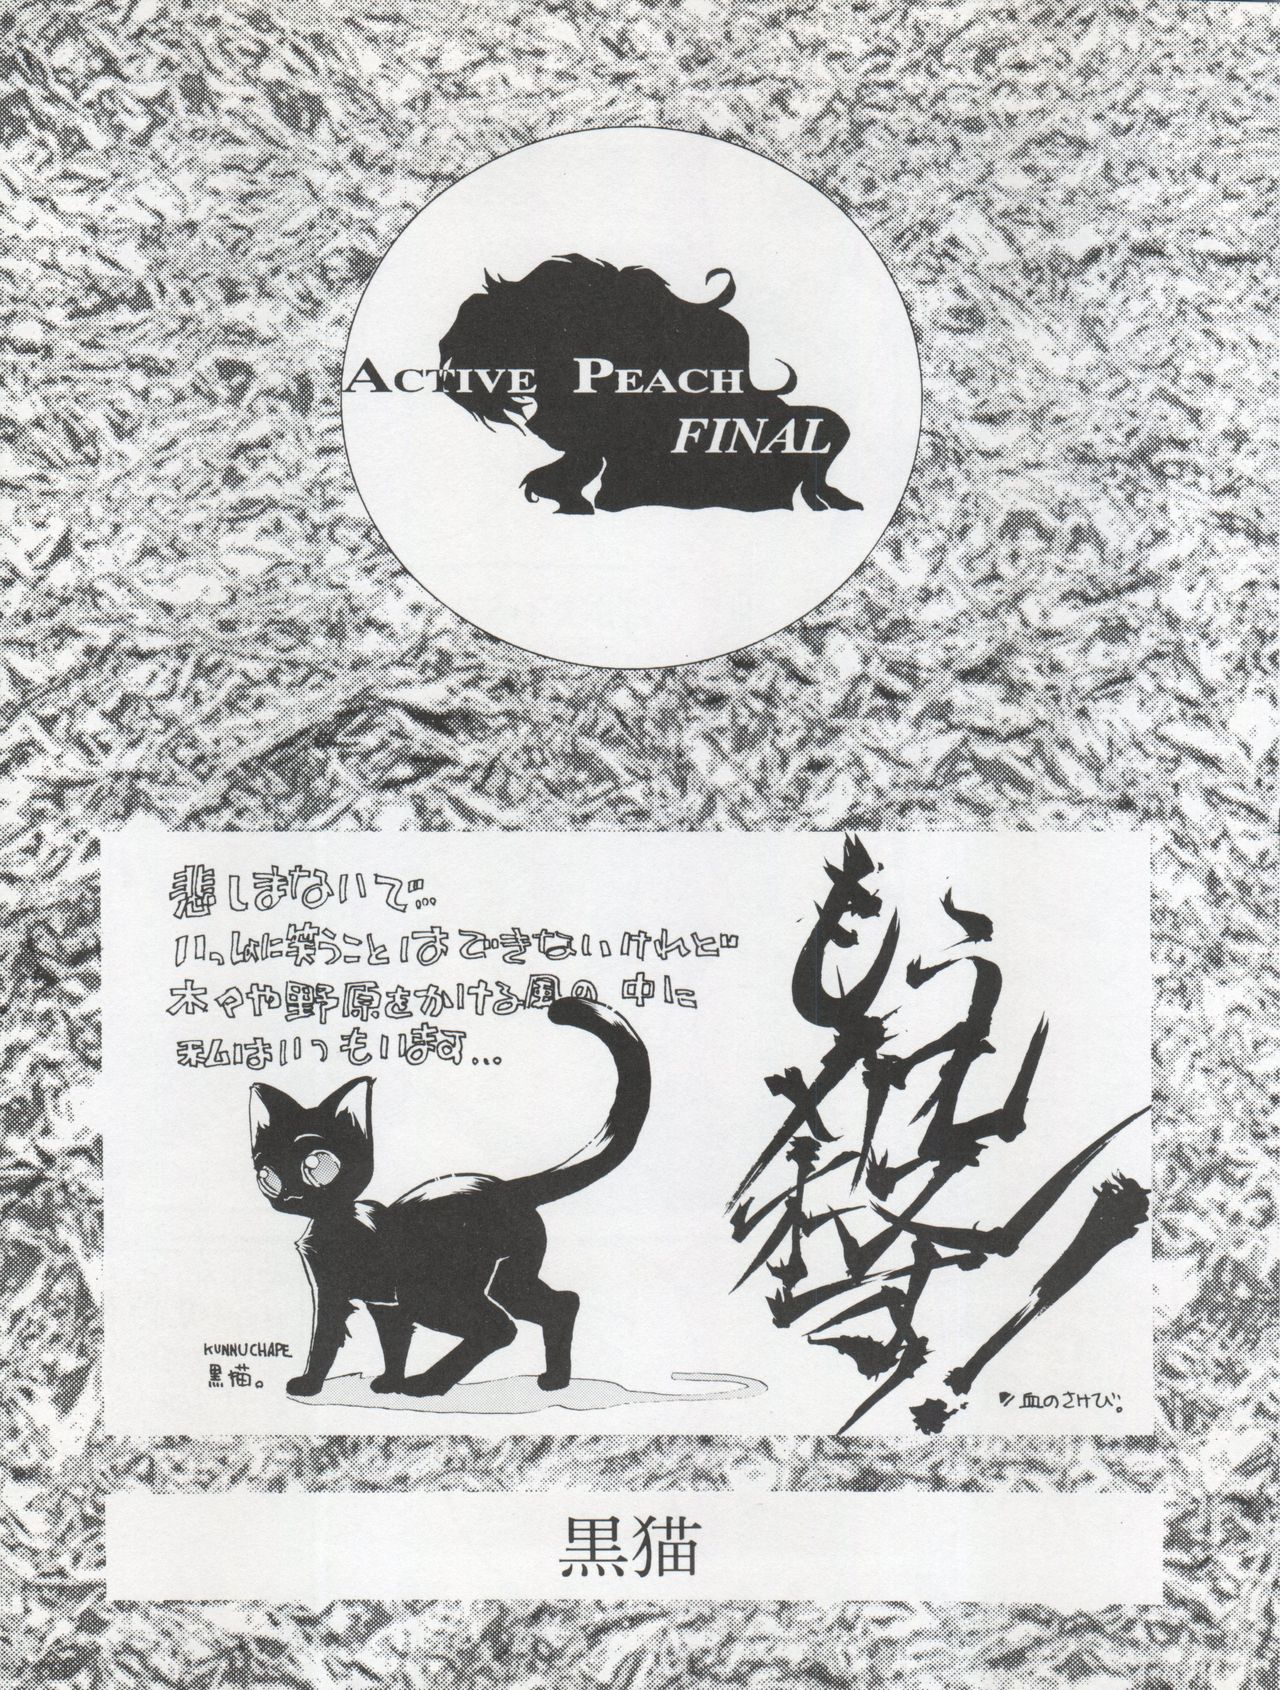 ACTIVE PEACH
FINAL
悲しまないで…
いっしょに笑うことはできないけれど
木々や野原をかける風の中に
私はいつもいます…
KUNNUCHAPE
黒猫。
もう
血のさけび。
黒猫